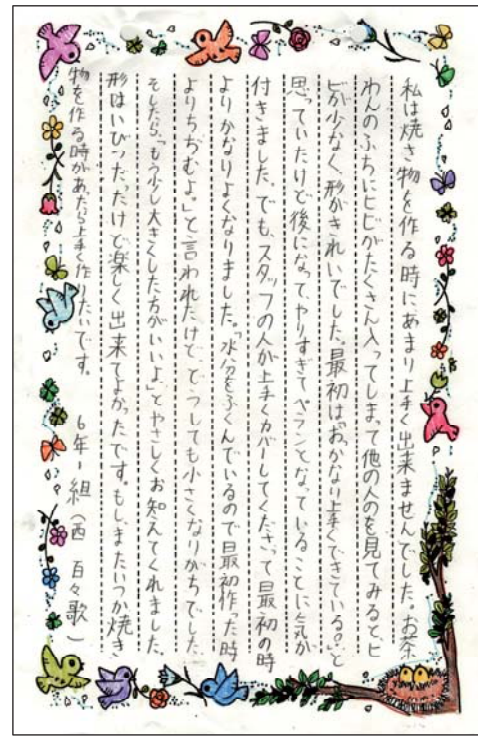 私は焼き物を作る時に、あまり上手く出来ませんでした。お茶
わんのふちにヒビがたくさん入ってしまって他の人のを見てみると、ヒ
ビが少なく、形がきれいでした。最初は「おっかなり上手くできている。」と
思っていたけど後になって、やりすぎてペランとなっていることに気が
付きました。でも、スタッフの人が上手くカバーしてくださって最初の時
よりかなりよくなりました。「水分をふくんでいるので最初作った時
よりちぢむよ。」と言われたけど、どうしても小さくなりがちでした。
そしたら、「もう少し大きくした方がいいよ」とやさしくお知えてくれました。
形はいびつだったけど楽しく出来てよかったです。もし、またいつか焼き
物を作る時があったら上手く作りたいです。 6年1組(西 百々歌)